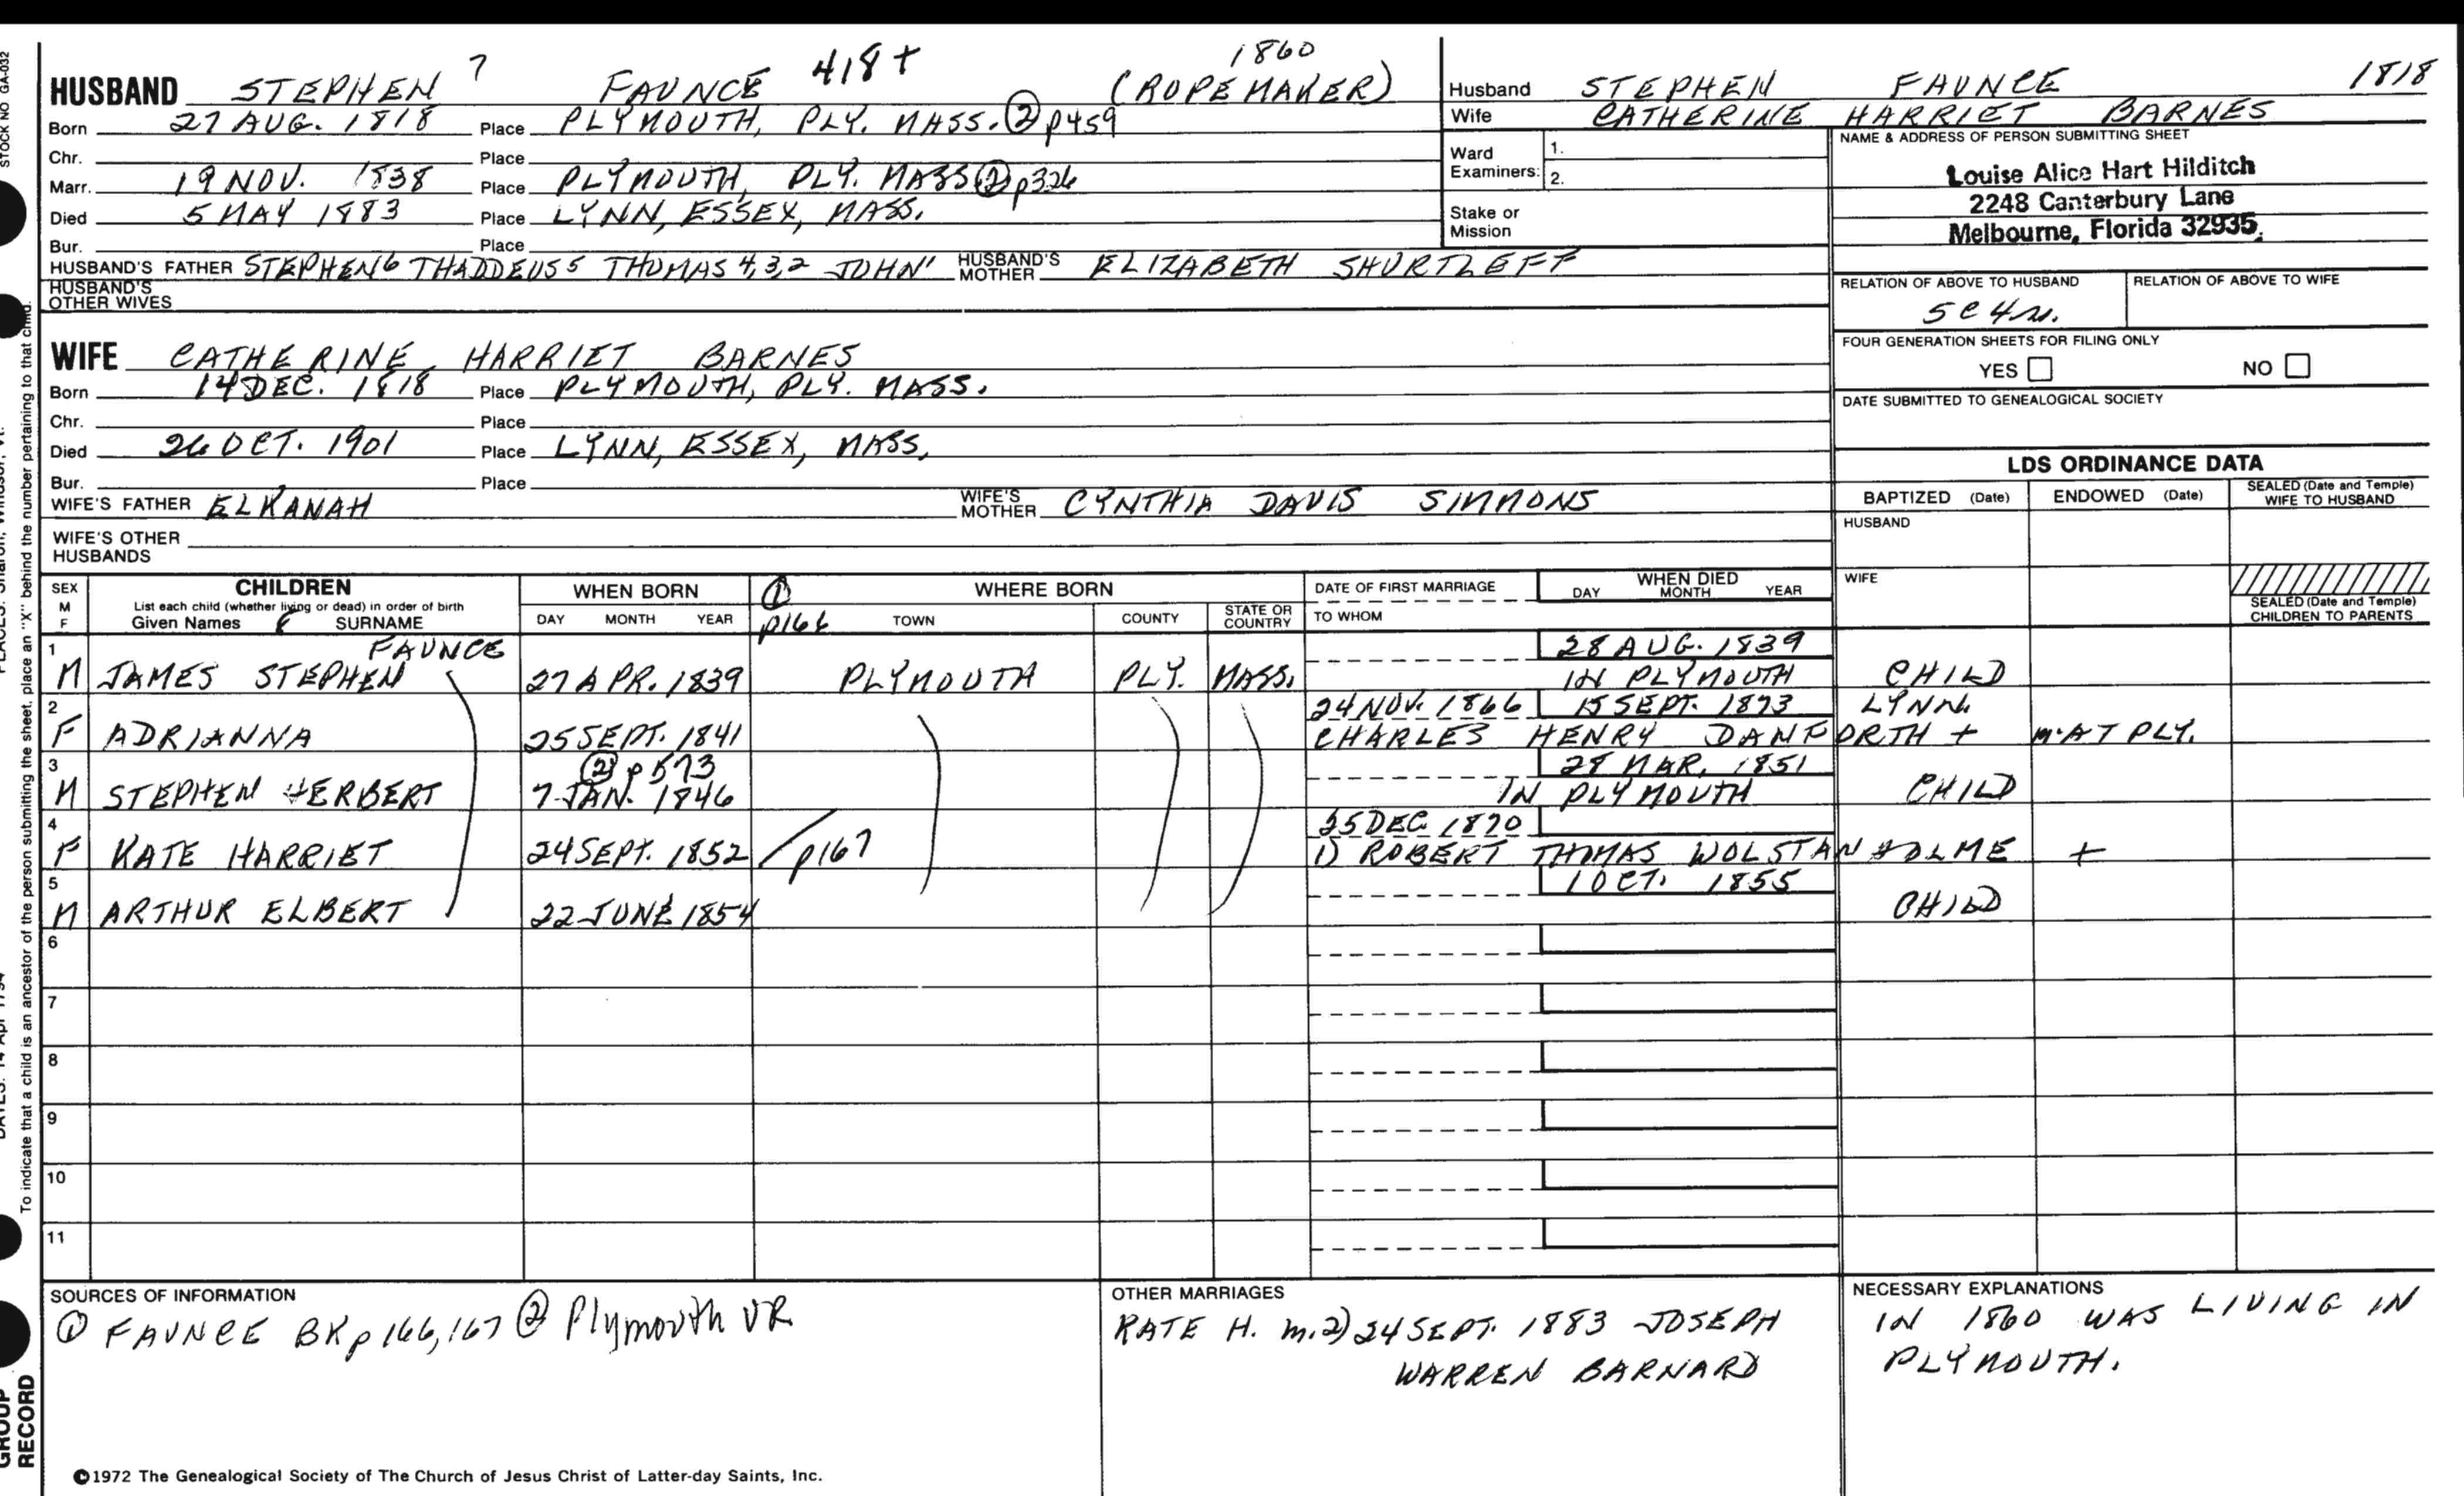 STOCK NO GA-032
HUSBAND STEPHEN 7 FAUNCE 418+ 1860 (ROPEMAKER)
Born 27 AUG. 1818 Place PLYMOUTH, PLY. MASS. ② p459
Chr. Place
Marr. 19 NOV. 1838 Place PLYMOUTH, PLY. MASS ② p326
Died 5 MAY 1883 Place LYNN, ESSEX, MASS.
Bur. Place
HUSBAND'S FATHER STEPHEN6 THADDEUS5 THOMAS 4,3,2 JOHN' HUSBAND'S MOTHER ELIZABETH SHURTLEFF
HUSBAND'S OTHER WIVES
Husband STEPHEN FAUNCE 1818
Wife CATHERINE HARRIET BARNES
Ward Examiners: 1.
2.
Stake or Mission
NAME & ADDRESS OF PERSON SUBMITTING SHEET
Louise Alice Hart Hilditch
2248 Canterbury Lane
Melbourne, Florida 32935
RELATION OF ABOVE TO HUSBAND RELATION OF ABOVE TO WIFE
5C4R.
FOUR GENERATION SHEETS FOR FILING ONLY
YES NO
DATE SUBMITTED TO GENEALOGICAL SOCIETY
WIFE CATHERINE HARRIET BARNES
Born 14 DEC. 1818 Place PLYMOUTH, PLY. MASS.
Chr. Place
Died 26 OCT. 1901 Place LYNN, ESSEX, MASS.
Bur. Place
WIFE'S FATHER ELKANAH WIFE'S MOTHER CYNTHIA DAVIS SIMMONS
WIFE'S OTHER HUSBANDS
LDS ORDINANCE DATA
BAPTIZED (Date) ENDOWED (Date) SEALED (Date and Temple) WIFE TO HUSBAND
HUSBAND
WIFE
SEALED (Date and Temple) CHILDREN TO PARENTS
SEX M F
CHILDREN
List each child (whether living or dead) in order of birth
Given Names SURNAME
WHEN BORN
DAY MONTH YEAR
① p166 WHERE BORN
TOWN COUNTY STATE OR COUNTRY
DATE OF FIRST MARRIAGE
TO WHOM
WHEN DIED
DAY MONTH YEAR
1 FAUNCE 28 AUG. 1839
M JAMES STEPHEN 27 APR. 1839 PLYMOUTH PLY. MASS. IN PLYMOUTH CHILD
2 24 NOV. 1866 15 SEPT. 1873 LYNN.
F ADRIANNA 25 SEPT. 1841 CHARLES HENRY DANFORTH + m. AT PLY.
3 ② p573 28 MAR. 1851
M STEPHEN HERBERT 7 JAN. 1846 IN PLYMOUTH CHILD
4 25 DEC 1870
F KATE HARRIET 24 SEPT. 1852 / p167 1) ROBERT THOMAS WOLSTANHOLME +
5 1 OCT. 1855
M ARTHUR ELBERT 22 JUNE 1854 CHILD
6
7
8
9
10
11
SOURCES OF INFORMATION
① FAUNCE BK p 166, 167 ② Plymouth VR
OTHER MARRIAGES
KATE H. m. 2) 24 SEPT. 1883 JOSEPH
WARREN BARNARD
NECESSARY EXPLANATIONS
IN 1860 WAS LIVING IN
PLYMOUTH.
©1972 The Genealogical Society of The Church of Jesus Christ of Latter-day Saints, Inc.
To indicate that a child is an ancestor of the person submitting the sheet, place an "X" behind the number pertaining to that child.
GROUP
RECORD